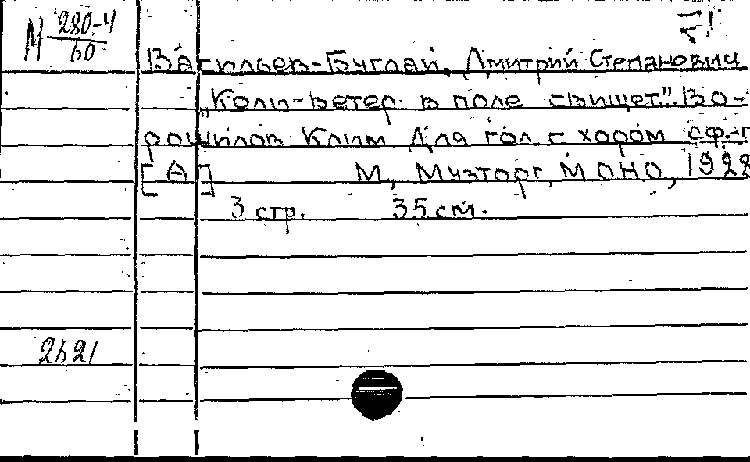 М 280-4
60
Васильев-Буглай, Дмитрий Степанович
„Коли-ветер в поле свищет". Во-
рошилов Клим Для гол. с хором сф-п
[А] М, Музторг, МОНО, 1928
3 стр. 35 см.
2521